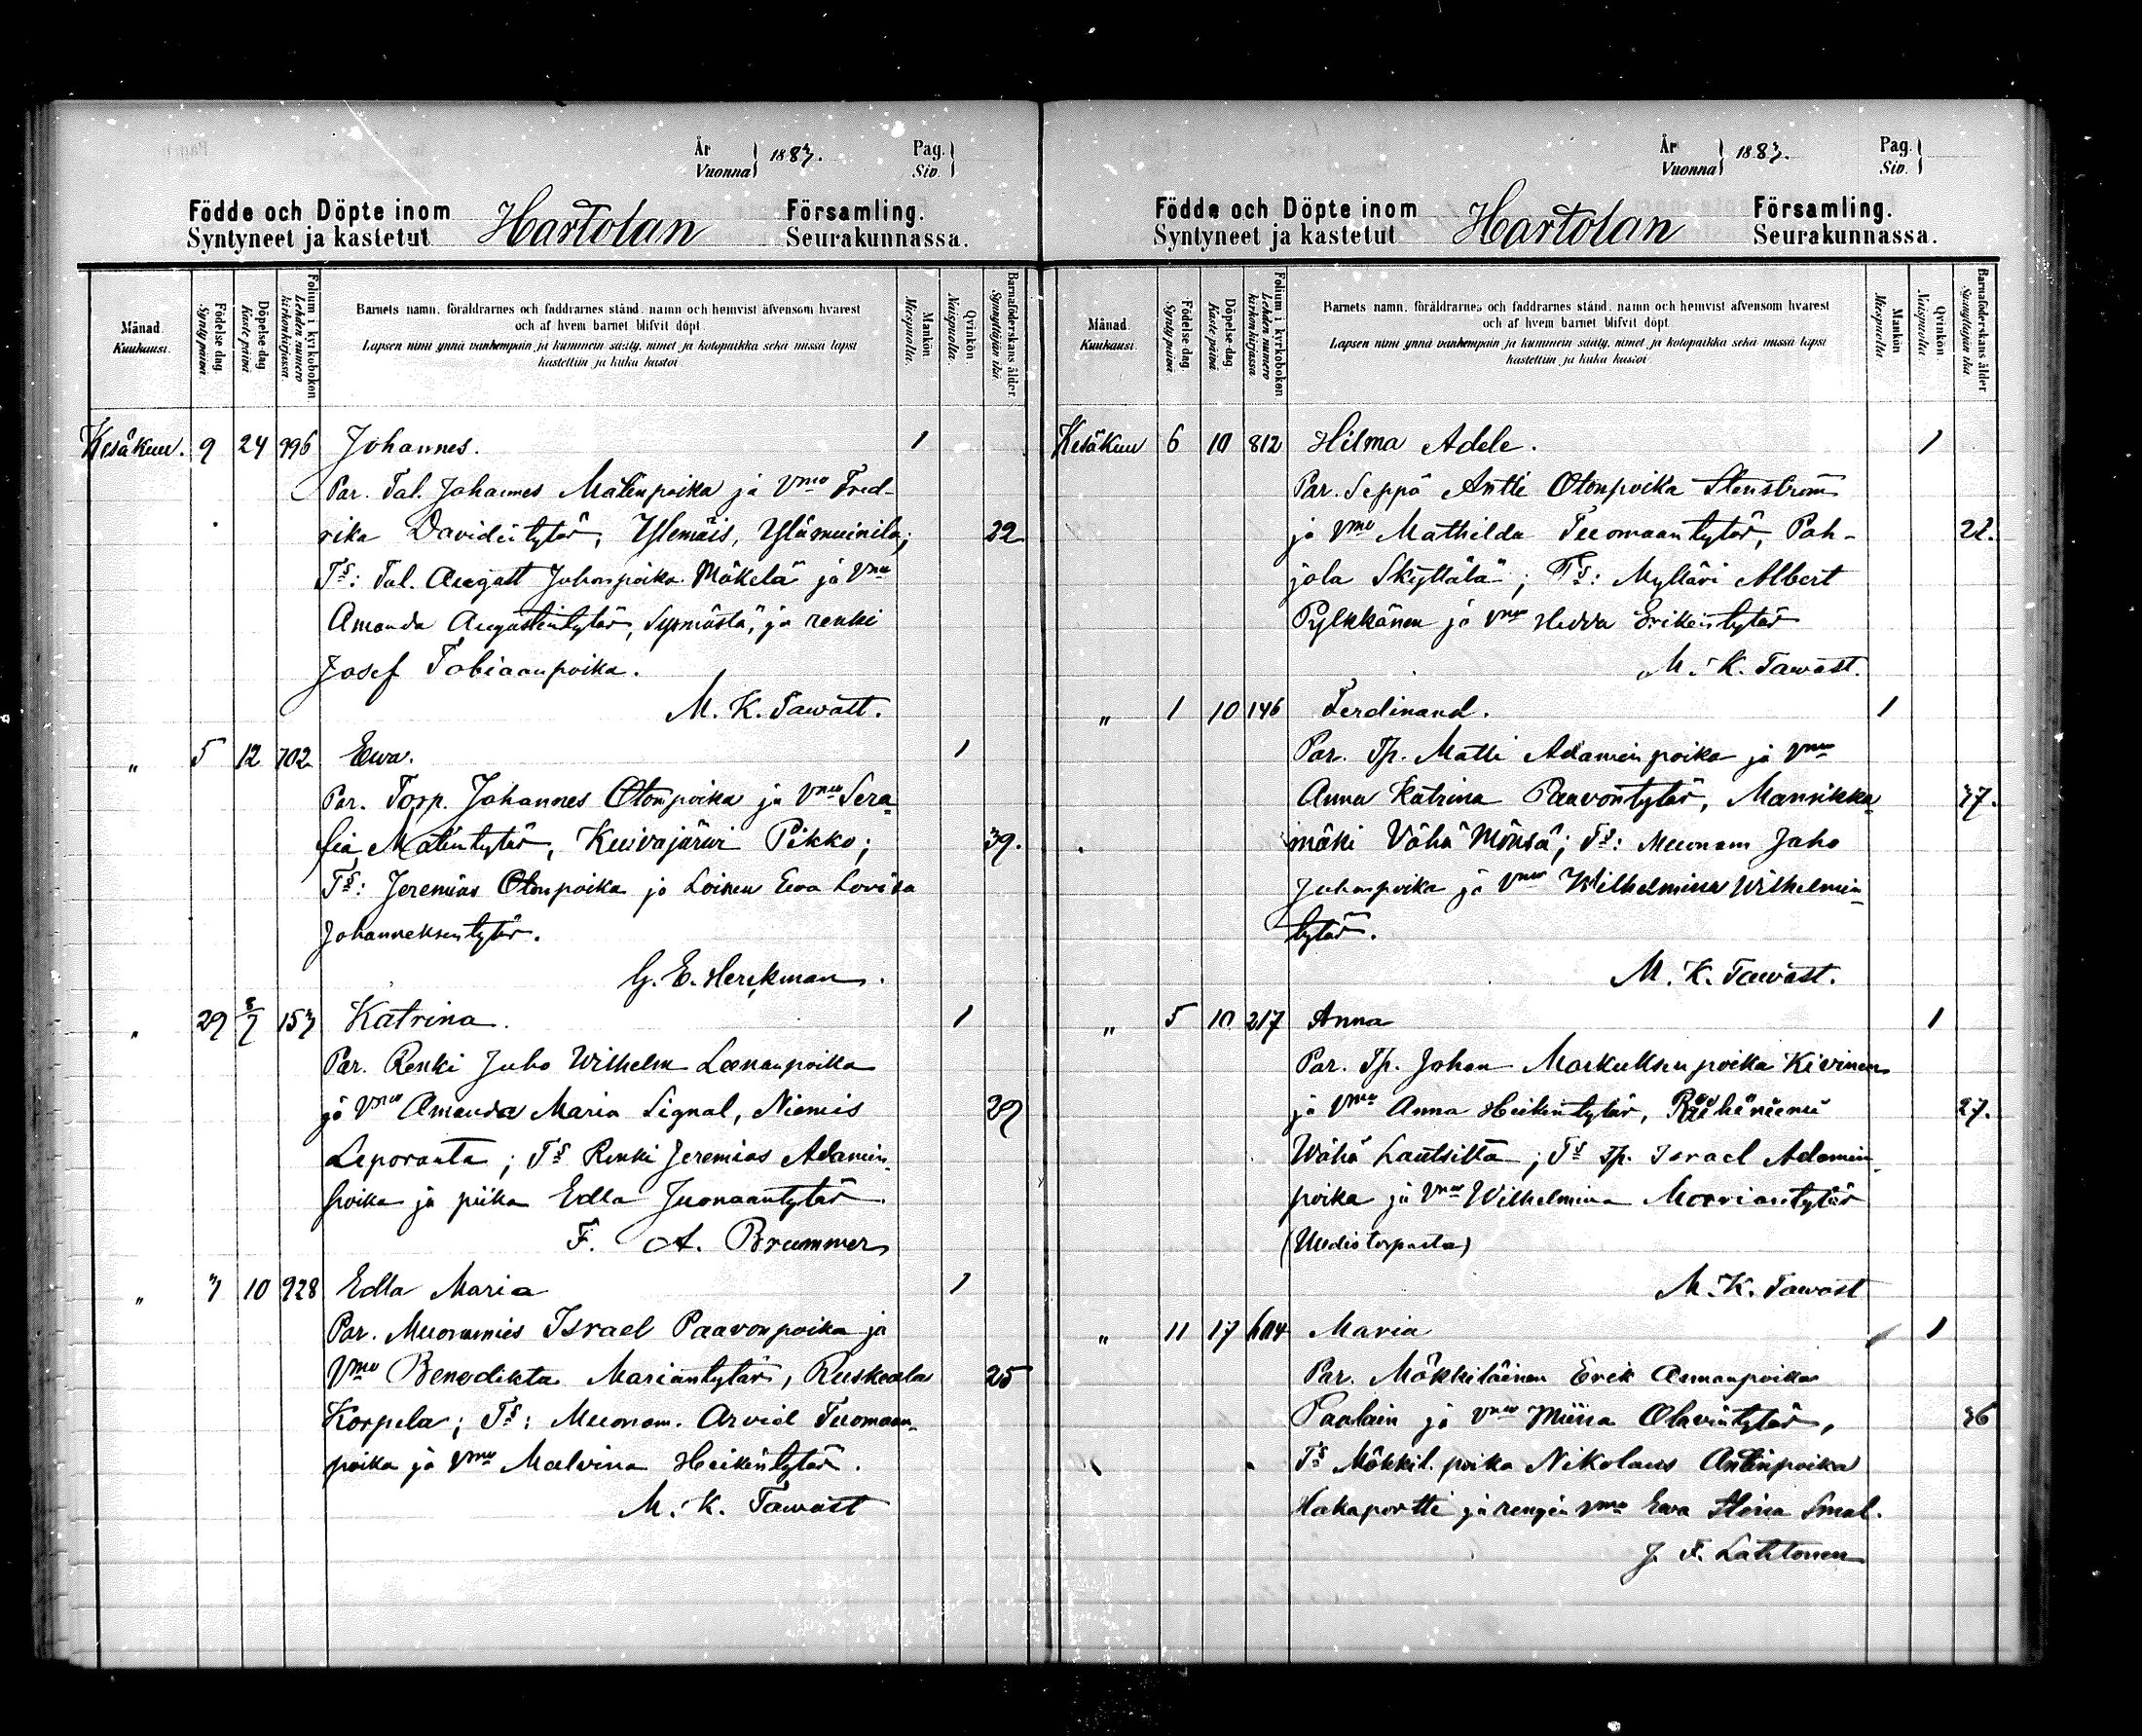 År
Vuonna
1883.
Pag.
Siv.
Födde och Döpte inom
Syntyneet ja kastetut
Hartolan
Församling.
Seurakunnassa.
Månad.
Kuukausi.
Födelse dag.
Synty päivä.
Döpelse dag.
Kaste päivä
Folium i kyrkoboken.
Lehden numero
kirkonkirjassa.
Barnets namn, föräldrarnes och faddrarnes stånd, namn och hemvist äfvensom hvarest
och af hvem barnet blifvit döpt.
Lapsen nimi ynnä vanhempain ja kummein sääty, nimet ja kotopaikka sekä missä lapsi
kastettiin ja kuka kastoi.
Mankön
Miespuolta.
Qvinkön.
Naispuolta.
Barnaföderskans ålder.
Synnyttäjän ikä
Kesäkuu. 9 24 996 Johannes. 1
Par. Tal. Johannes Matinpoika ja Vmo Fred-
rika Davidintytär, Ylemäis, Ylämuinila; 22
Ts: Tal. August Juhonpoika Mäkelä ja Vmo
Amanda Augustintytär, Sysmästä, ja renki
Josef Tobiaanpoika.
M. K. Tawast.
" 5 12 702 Ewa. 1
Par. Torp. Johannes Otonpoika ja Vmo Sera-
fia Matintytär, Kuivajärwi Pikko; 39.
Ts: Jeremias Otonpoika ja Loinen Ewa Lovisa
Johanneksentytär.
G. E. Herckman.
" 29 8/7 153 Katrina. 1
Par. Renki Juho Wilhelm Leenanpoika
ja Vmo Amanda Maria Signal, Niemis 29
Leporanta; Ts Renki Jeremias Adamin-
poika ja piika Edla Juonaantytär.
F. A. Brummer
" 3 10 928 Edla Maria 1
Par. Muonamies Israel Paavonpoika ja
Vmo Benedikta Mariantytär, Ruskeala 25
Korpela; Ts: Muonam. Arvid Tuomaan-
poika ja Vmo Malvina Heikintytär.
M. K. Tawast
År
Vuonna
1883.
Pag.
Siv.
Födde och Döpte inom
Syntyneet ja kastetut
Hartolan
Församling.
Seurakunnassa.
Månad.
Kuukausi.
Födelse dag.
Synty päivä.
Döpelse dag.
Kaste päivä.
Folium i kyrkoboken
Lehden numero
kirkonkirjassa.
Barnets namn, föräldrarnes och faddrarnes stånd, namn och hemvist äfvensom hvarest
och af hvem barnet blifvit döpt.
Lapsen nimi ynnä vanhempain ja kummein sääty, nimet ja kotopaikka sekä missä lapsi
kastettiin ja kuka kastoi
Mankön
Miespuolta
Qvinkön
Naispuolta.
Barnaföderskans ålder
Synnyttäjän ikä.
Kesäkuu 6 10 812 Hilma Adele. 1
Par. Seppä Antti Otonpoika Stenström
ja Vmo Mathilda Tuomaantytär, Poh- 22.
jola Skyttälä; Ts: Mylläri Albert
Pylkkänen ja Vmo Hedda Erikintytär
M. K. Tawast.
" 1 10 146 Ferdinand. 1
Par. Tp. Matti Adaminpoika ja Vmo
Anna Katrina Paavontytär, Mansikka- 37.
mäki Vähä Mönsä; Ts: Muonam Juho
Juhonpoika ja Vmo Wilhelmina Wilhelmin-
tytär.
M. K. Tawast.
" 5 10 217 Anna 1
Par. Tp. Johan Markuksenpoika Kivinen
ja Vmo Anna Heikintytär, 27.
Wähä Lautsilta; Ts Tp. Israel Adamin-
poika ja Vmo Wilhelmina Moriantytär
(Uudistorpasta)
M. K. Tawast
" 11 17 604 Maria 1
Par. Mökkiläinen Erik Annanpoika
Paulain ja Vmo Miina Olavintytär, 36
Ts Mökkil. poika Nikolaus Antinpoika
Hakaportti ja rengin Vmo Ewa Stina Smal.
J. F. Lahtonen